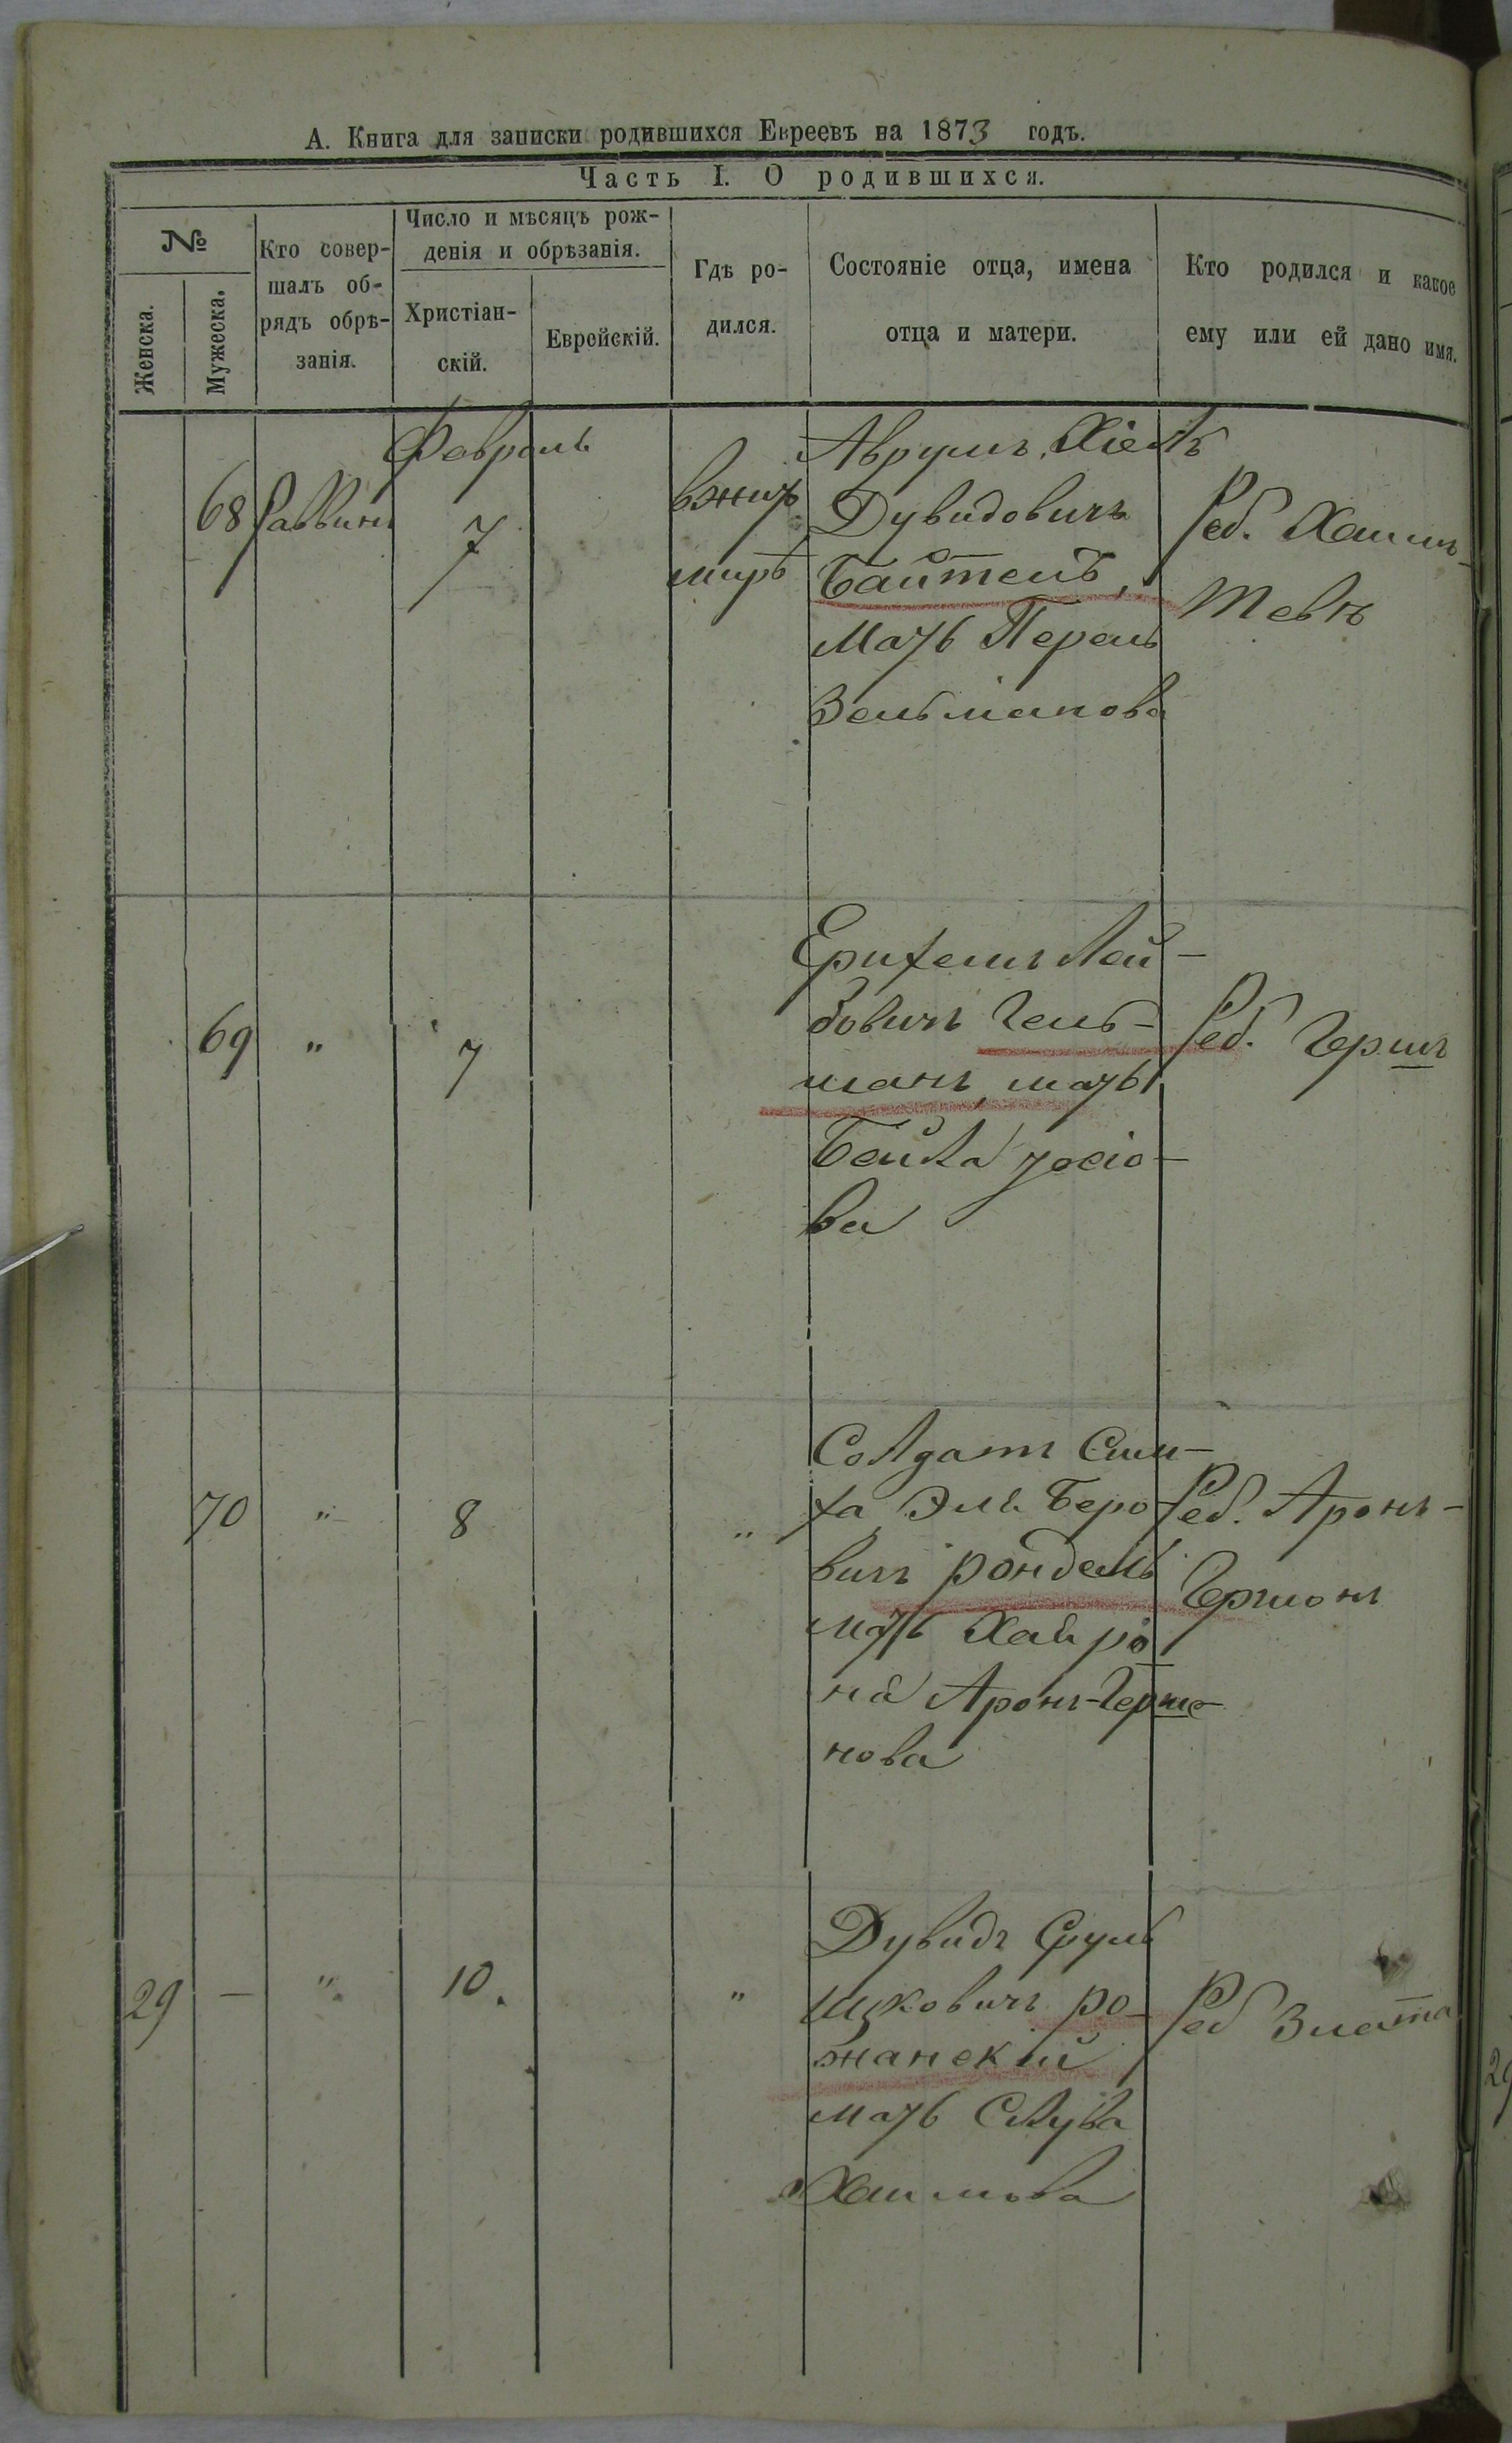 А. Книга для записки родившихся Евреевъ на 1873 годъ.
Часть I. О родившихся.
№
Женска.
Мужеска.
Кто совер-
шалъ об-
рядъ обрѣ-
занія.
Число и мѣсяцъ рож-
денія и обрѣзанія.
Христіан-
скій.
Еврейскій.
Гдѣ ро-
дился.
Состояніе отца, имена
отца и матери.
Кто родился и какое
ему или ей дано имя.
Февраль
68 Раввинъ 7
вжито
миръ
Аврумъ Хіелъ
Дувидовичъ
Байтенъ,
мать Перель
Зельманова
Реб. Хаимъ
Тевъ
69 " 7
Ерихемъ Лей-
бовичъ Гель-
манъ, мать
Бейла
ва
Реб. Герша
70 " 8 "
Солдатъ Сим-
ха Эль Беро-
вичъ рондель
мать Хая ро
на Аронъ-Гершо-
нова
Реб. Аронъ-
Гершонъ
29 — " 10. "
Дувидъ Сруль
Ицковичъ ро-
жанский
мать Слува
Хаимова
Реб Злата
29